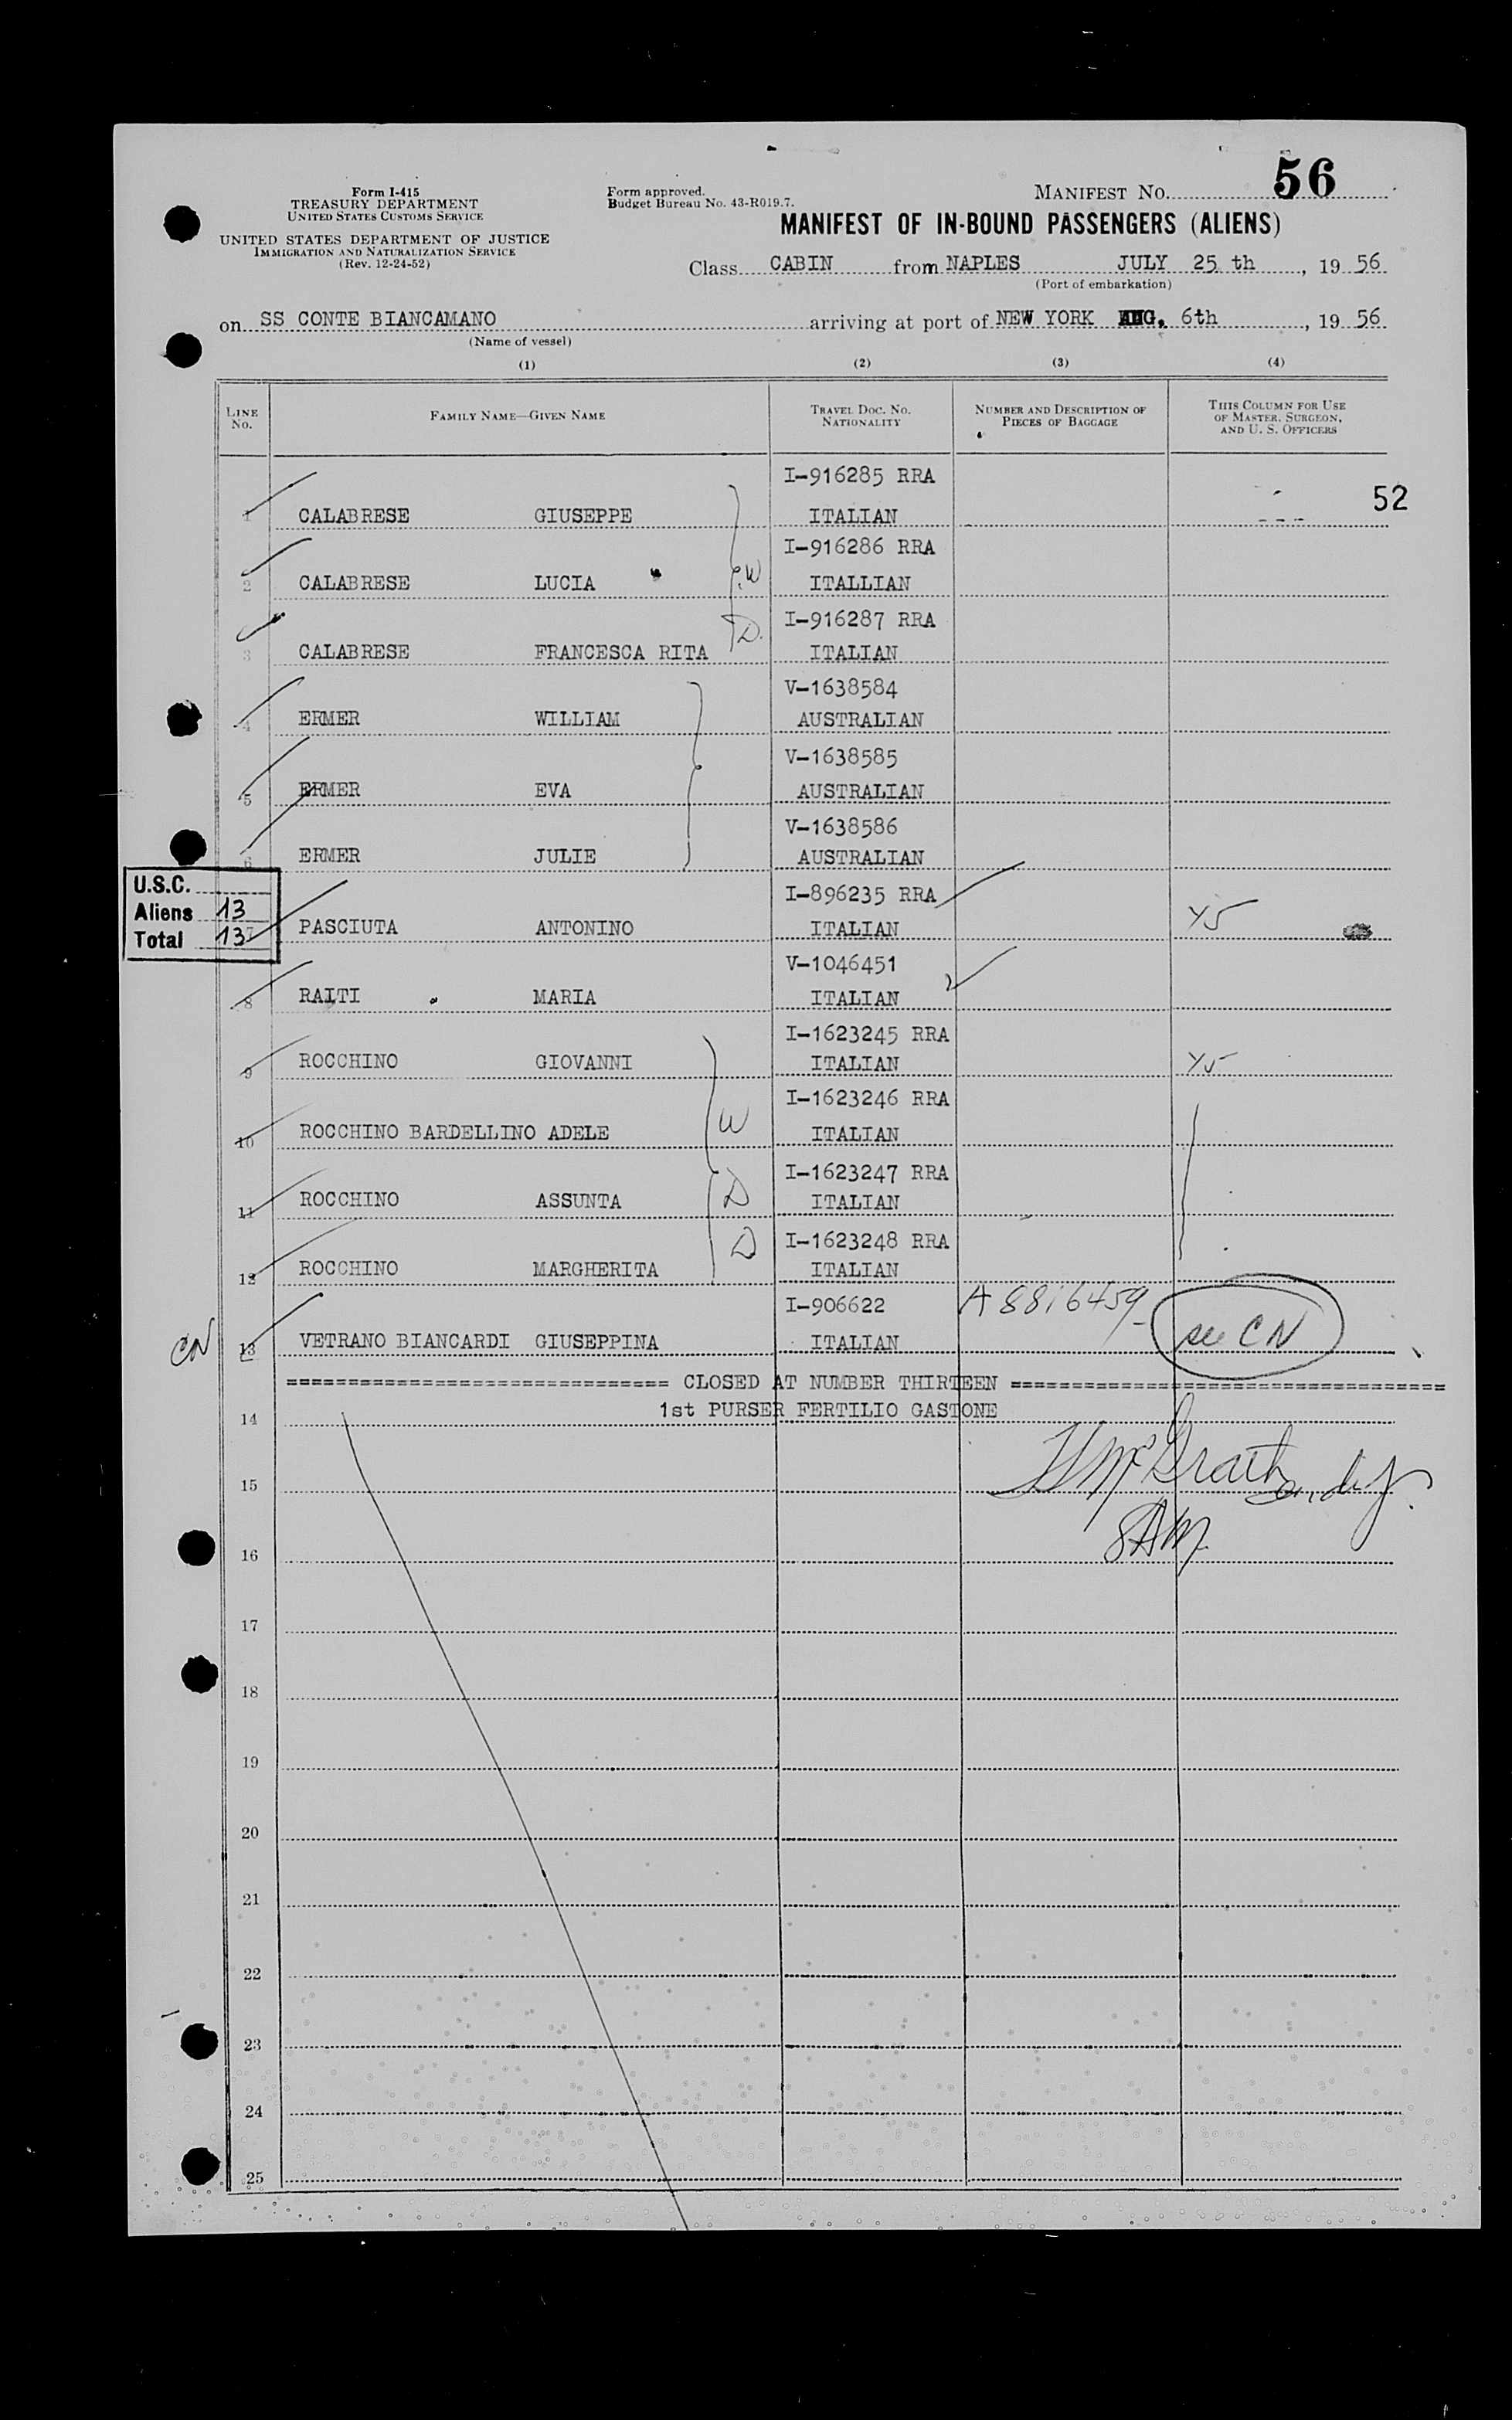 Form I-415
TREASURY DEPARTMENT
UNITED STATES CUSTOMS SERVICE
UNITED STATES DEPARTMENT OF JUSTICE
IMMIGRATION AND NATURALIZATION SERVICE
(Rev. 12-24-52)
Form approved.
Budget Bureau No. 43-R019.7.
MANIFEST NO. 56
MANIFEST OF IN-BOUND PASSENGERS (ALIENS)
Class CABIN from NAPLES JULY 25 th, 19 56
(Port of embarkation)
on SS CONTE BIANCAMANO arriving at port of NEW YORK AUG. 6th, 19 56
(Name of vessel)
(1) (2) (3) (4)
LINE No. FAMILY NAME—GIVEN NAME TRAVEL DOC. NO. NATIONALITY NUMBER AND DESCRIPTION OF PIECES OF BAGGAGE THIS COLUMN FOR USE OF MASTER, SURGEON, AND U. S. OFFICERS
I-916285 RRA
52
1 CALABRESE GIUSEPPE ITALIAN
I-916286 RRA
2 CALABRESE LUCIA W ITALLIAN
I-916287 RRA
D.
3 CALABRESE FRANCESCA RITA ITALIAN
V-1638584
4 ERMER WILLIAM AUSTRALIAN
V-1638585
5 ERMER EVA AUSTRALIAN
V-1638586
6 ERMER JULIE AUSTRALIAN
U.S.C.
Aliens 13
Total 13
I-896235 RRA
7 PASCIUTA ANTONINO ITALIAN
V-1046451
8 RAITI MARIA ITALIAN
I-1623245 RRA
9 ROCCHINO GIOVANNI ITALIAN
I-1623246 RRA
10 ROCCHINO BARDELLINO ADELE W ITALIAN
I-1623247 RRA
11 ROCCHINO ASSUNTA D ITALIAN
I-1623248 RRA
12 ROCCHINO MARGHERITA D ITALIAN
I-906622 A8816459
CN 13 VETRANO BIANCARDI GIUSEPPINA ITALIAN see CN
=============================== CLOSED AT NUMBER THIRTEEN ===================================
1st PURSER FERTILIO GASTONE
14
15
16
17
18
19
20
21
22
23
24
25